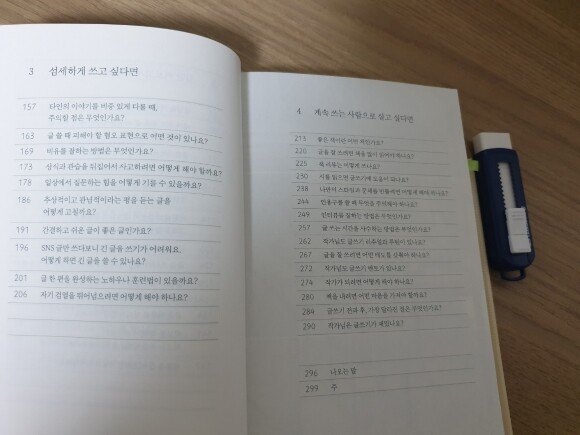 3 섬세하게 쓰고 싶다면
157 타인의 이야기를 비중 있게 다룰 때,
주의할 점은 무엇인가요?
163 글 쓸 때 피해야 할 혐오 표현으로 어떤 것이 있나요?
169 비유를 잘하는 방법은 무엇인가요?
173 상식과 관습을 뒤집어서 사고하려면 어떻게 해야 할까요?
178 일상에서 질문하는 힘을 어떻게 기를 수 있을까요?
186 추상적이고 관념적이라는 평을 듣는 글을
어떻게 고칠까요?
191 간결하고 쉬운 글이 좋은 글인가요?
196 SNS 글만 쓰다보니 긴 글을 쓰기가 어려워요.
어떻게 하면 긴 글을 쓸 수 있나요?
201 글 한 편을 완성하는 노하우나 훈련법이 있을까요?
206 자기 검열을 뛰어넘으려면 어떻게 해야 하나요?
4 계속 쓰는 사람으로 살고 싶다면
213 좋은 책이란 어떤 책인가요?
220 글을 잘 쓰려면 책을 많이 읽어야 하나요?
225 책 리뷰는 어떻게 쓰나요?
230 시를 읽으면 글쓰기에 도움이 되나요?
238 나만의 스타일과 문체를 만들려면 어떻게 해야 하나요?
244 인용구를 쓸 때 무엇을 주의해야 하나요?
249 인터뷰를 잘하는 방법은 무엇인가요?
257 글 쓰는 시간을 사수하는 방법은 무엇인가요?
262 작가님도 글쓰기 외유럽과 부침이 있나요?
267 글을 잘 쓰려면 어떤 태도를 갖춰야 하나요?
272 작가님도 글쓰기 멘토가 있나요?
274 작가가 되려면 어떻게 해야 하나요?
280 책을 내려면 어떤 마음을 가져야 할까요?
284 글쓰기 전과 후, 가장 달라진 점은 무엇인가요?
290 작가님은 글쓰기가 재밌나요?
296 나오는 말
299 주